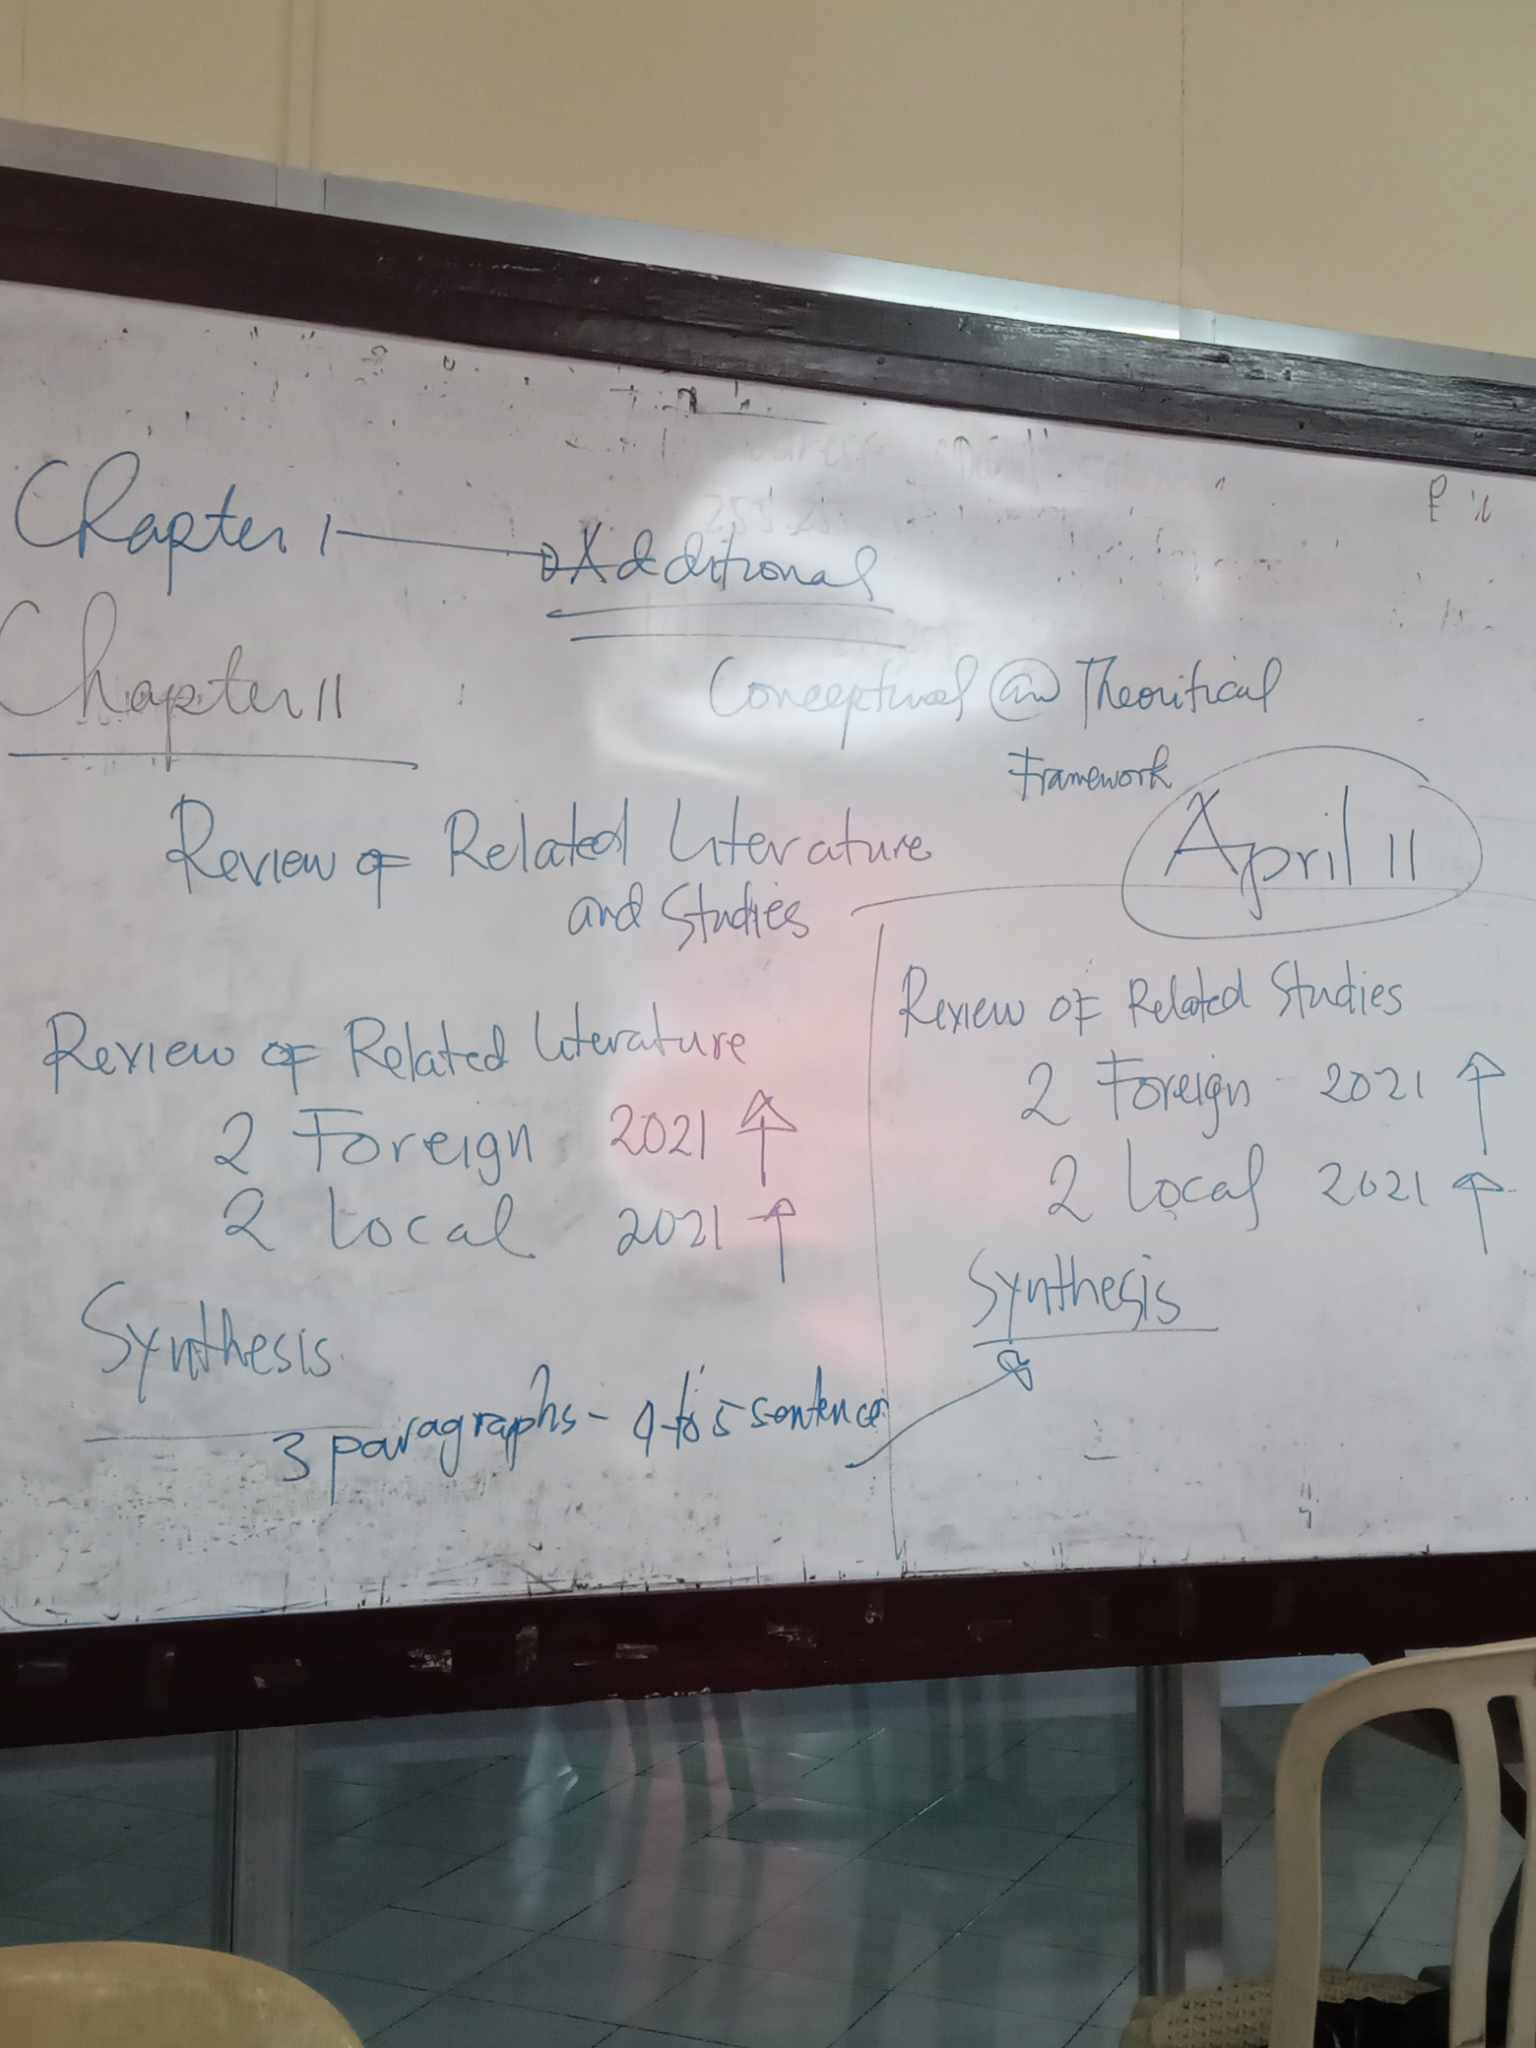 Chapter 1 Additional
Conceptual Theoritical
Framework
Chapter II
April 11
Review of Related Literature
and Studies
Review of Related Literature
2 Foreign 2021 ↑
2 Local 2021 ↑
Synthesis
3 paragraphs - 4 to 5 sentences
Review of Related Studies
2 Foreign - 2021 ↑
2 Local 2021 ↑
Synthesis